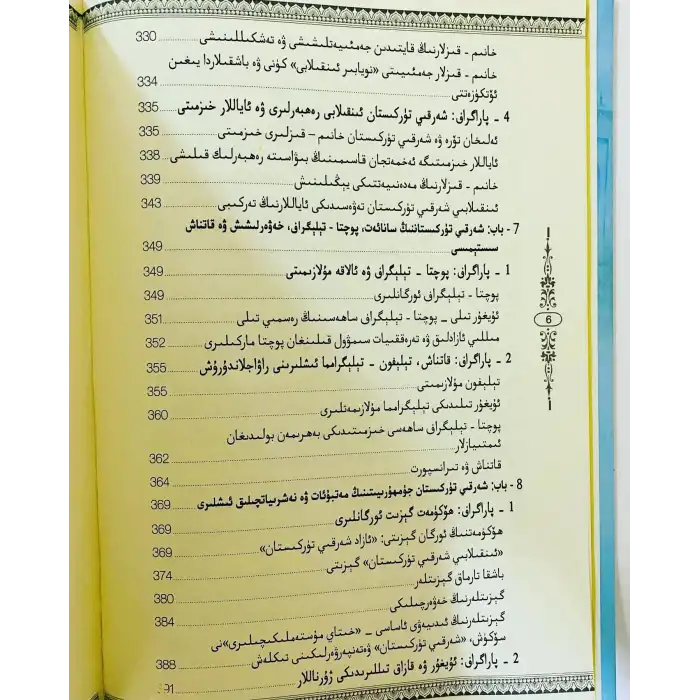 خانىم - قىزلارنىڭ قايتىدىن جەمئىيەتلىشىشى ۋە تەشكىللىنىشى 330
خانىم - قىزلار جەمئىيىتى «نويابىر ئىنقىلابى» كۈنى ۋە باشقىلاردا يىغىن
ئۆتكۈزەتتى 334
4 - پاراگراف: شەرقىي تۈركىستان ئىنقىلابى رەھبەرلىرى ۋە ئاياللار خىزمىتى 335
ئەلىخان تۆرە ۋە شەرقىي تۈركىستان خانىم - قىزلىرى خىزمىتى 335
ئاياللار خىزمىتىگە ئەخمەتجان قاسىمىنىڭ بىۋاسىتە رەھبەرلىك قىلىشى 338
خانىم - قىزلارنىڭ مەدەنىيەتتىكى يېڭىلىنىش 339
ئىنقىلابىي شەرقىي تۈركىستان تەۋەسىدىكى ئاياللارنىڭ تەركىبى 343
7 - باب: شەرقىي تۈركىستاننىڭ سانائەت، پوچتا - تېلېگراف، خەۋەرلىشىش ۋە قاتناش
سىستېمىسى 349
1 - پاراگراف: پوچتا - تېلېگراف ۋە ئالاقە مۇلازىمىتى 349
پوچتا - تېلېگراف ئورگانلىرى 349
ئۇيغۇر تىلى - پوچتا - تېلېگراف ساھەسىنىڭ رەسمىي تىلى 351
مىللىي ئازادلىق ۋە تەرەققىيات سىمۋول قىلىنغان پوچتا ماركىلىرى 352
2 - پاراگراف: قاتناش، تېلېفون - تېلېگرامما ئىشلىرىنى راۋاجلاندۇرۇش 355
تېلېفون مۇلازىمىتى 355
ئۇيغۇر تىلىدىكى تېلېگرامما مۇلازىمەتلىرى 360
پوچتا - تېلېگراف ساھەسى خىزمىتىدىكى بەھرىمەن بولىدىغان
ئىمتىيازلار 362
قاتناش ۋە تىرانسپورت 364
8 - باب: شەرقىي تۈركىستان جۇمھۇرىيىتىنىڭ مەتبۇئات ۋە نەشرىياتچىلىق ئىشلىرى 369
1 - پاراگراف: ھۆكۈمەت گېزىت ئورگانلىرى 369
ھۆكۈمەتنىڭ ئورگان گېزىتى: «ئازاد شەرقىي تۈركىستان» 369
«ئىنقىلابىي شەرقىي تۈركىستان» گېزىتى 374
باشقا تارماق گېزىتلەر 380
گېزىتلەرنىڭ خەۋەرچىلىكى 384
گېزىتلەرنىڭ ئىدىيەۋى ئاساسى - «خىتاي مۇستەملىكىچىلىرى»نى
سۆكۈش، «شەرقىي تۈركىستان» ۋەتەنپەرۋەرلىكىنى تىكلەش 388
2 - پاراگراف: ئۇيغۇر ۋە قازاق تىللىرىدىكى ژۇرناللار 391
6